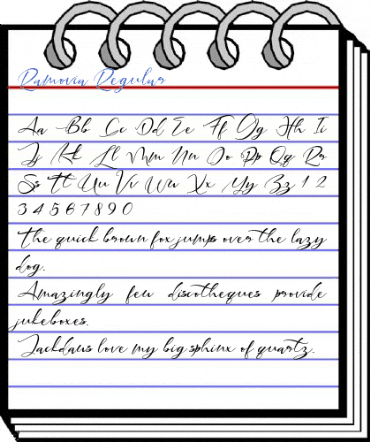 Ramovia Regular
Aa Bb Cc Dd Ee Ff Gg Hh Ii
Jj Kk Ll Mm Nn Oo Pp Qq Rr
Ss Tt Uu Vv Ww Xx Yy Zz 1 2
3 4 5 6 7 8 9 0
The quick brown fox jumps over the lazy
dog.
Amazingly few discotheques provide
jukeboxes.
Jackdaws love my big sphinx of quartz.